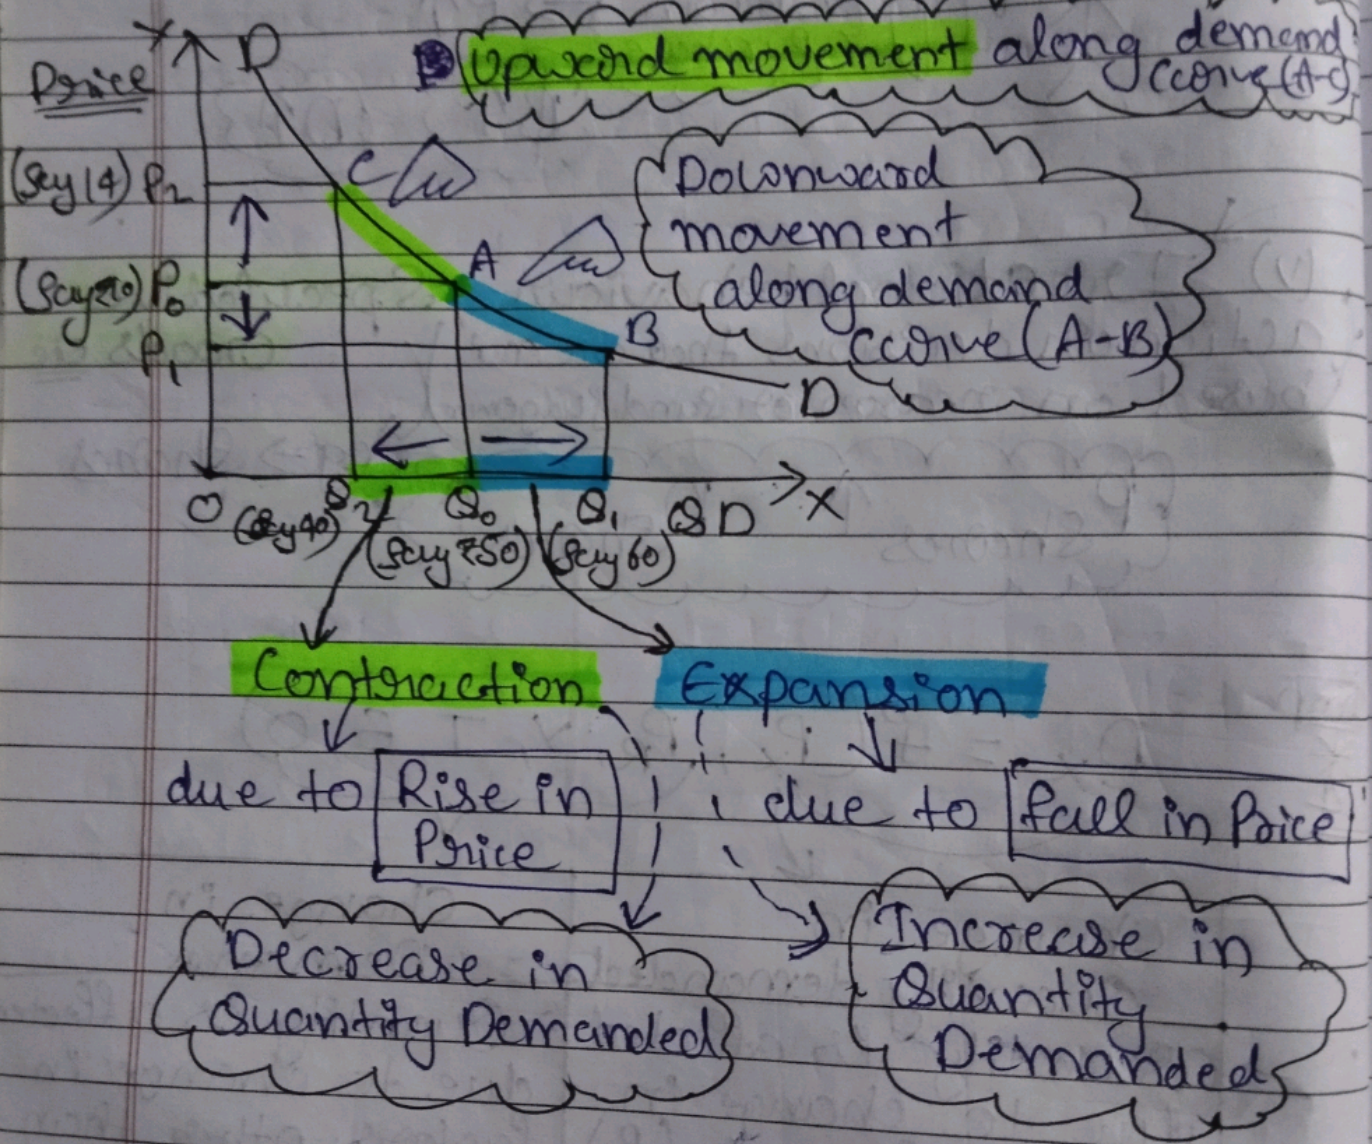 Y
D
Upward movement along demand
curve (A-C)
Price
(Say 14) P2
C
Downward
movement
along demand
curve (A-B)
A
(Say ₹10) P0
B
P1
D
O
Q2
Q0
Q1
QD
X
(Say 40)
(Say ₹50)
(Say 60)
Contraction
Expansion
due to Rise in
Price
due to fall in Price
Decrease in
Quantity Demanded
Increase in
Quantity
Demanded